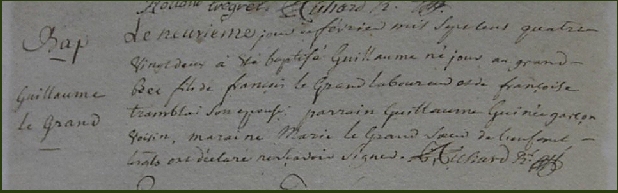 Richard P.
Bap
Guillaume
le Grand
Le neuvieme jour de fevrier mil sept cens quatre
vingt deux à eté baptisé Guillaume né jour au grand
fils de francois le Grand laboureur et de françoise
tramblai son epouse; parrain Guillaume Guinée garçon
voisin, maraine Marie le Grand Sœur de l'enfant
ont déclaré ne sçavoir signer. Richard P.